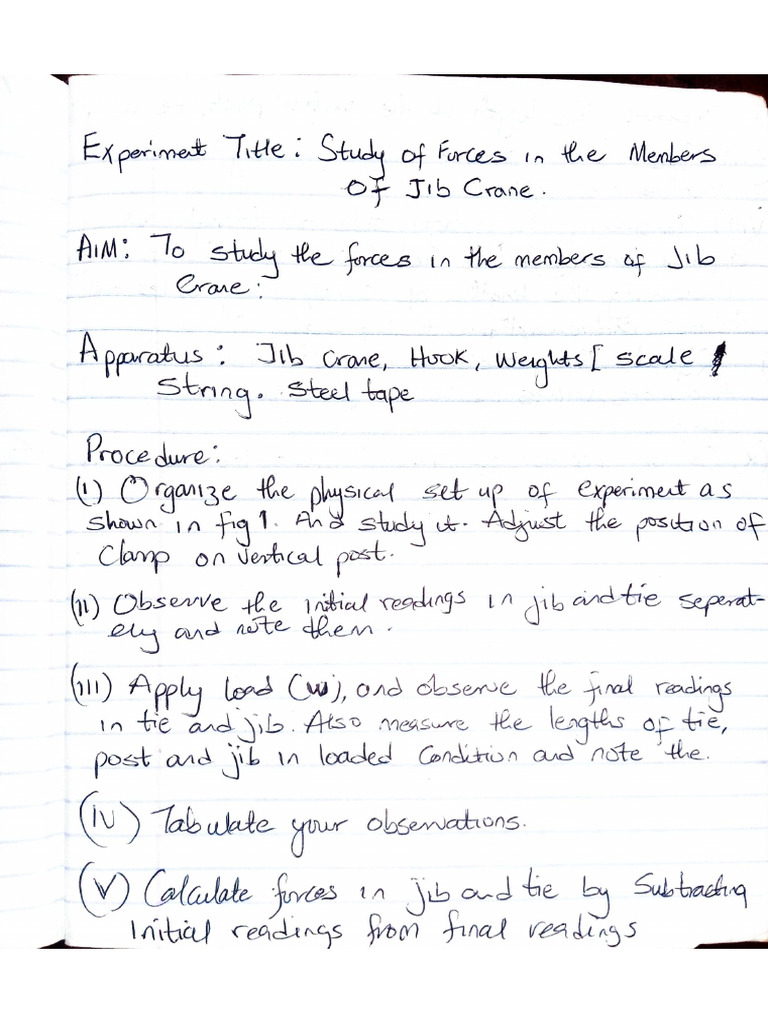 Experiment Title: Study of Forces in the Members
OF Jib Crane.
AIM: To study the forces in the members of Jib
Crane:
Apparatus: Jib Crane, Hook, Weights [ scale
String. Steel tape
Procedure:
(i) Organize the physical set up of experiment as
shown in fig 1. And study it. Adjust the position of
Clamp on vertical post.
(ii) Observe the initial readings in jib and tie seperat-
ely and note them.
(iii) Apply load (w), and observe the final readings
in tie and jib. Also measure the lengths of tie,
post and jib in loaded Condition and note the.
(iv) Tabulate your observations.
(v) Calculate forces in jib and tie by Subtracting
Initial readings from final readings